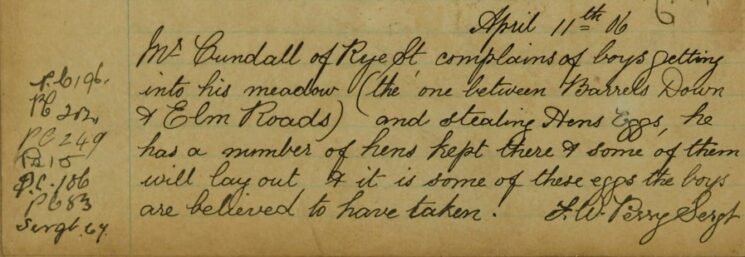 April 11th 06
Mr Cundall of Rye St complains of boys getting
into his meadow (the one between Barrels Down
& Elm Roads) and stealing Hens Eggs, he
has a number of hens kept there & some of them
will lay out, & it is some of these eggs the boys
are believed to have taken. F.W. Perry Sergt
P.C. 196.
PC 202
PC 249
PC 15
P.C. 186
PC 83
Sergt. 67.